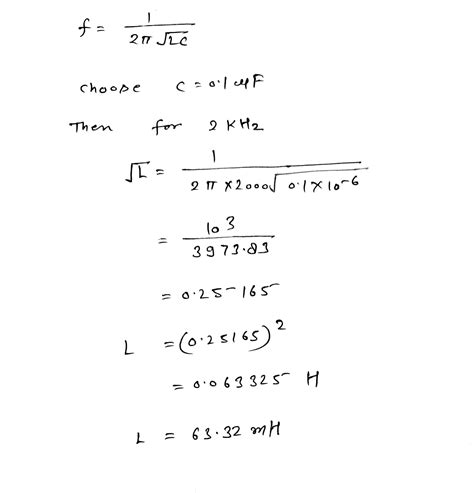 f = 1 / 2π √LC
choose C = 0.1 μF
Then for 2 KHz
√L = 1 / 2π × 2000 √0.1 × 10^-6
= 10^3 / 3973.83
= 0.25165
L = (0.25165)^2
= 0.063325 H
L = 63.32 mH